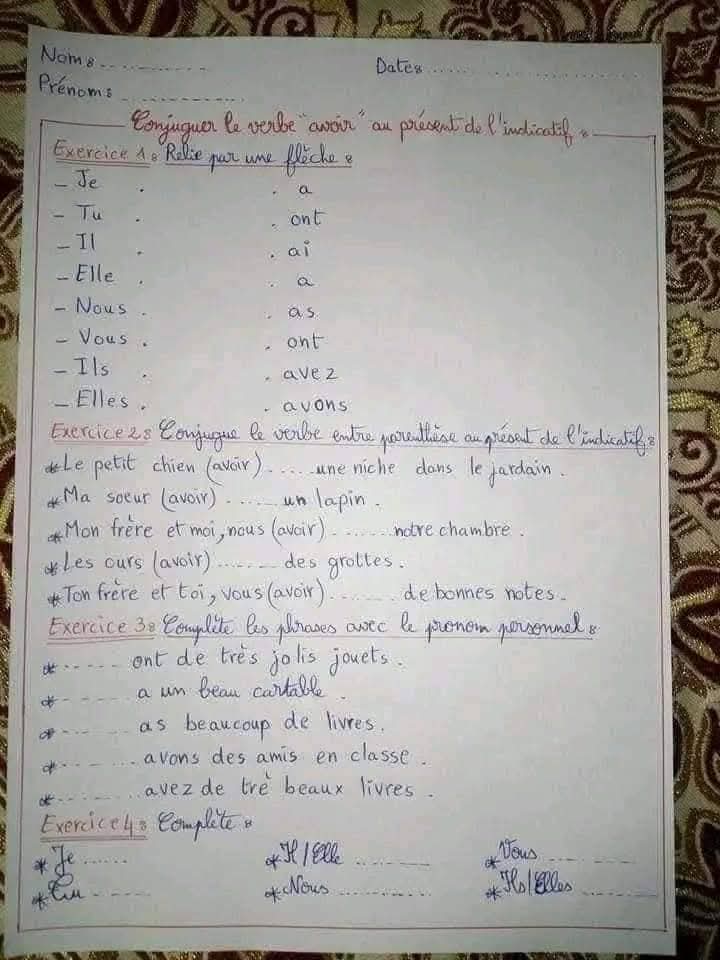 Nom : ............ Date : ............
Prénom : ............
Conjuguer le verbe "avoir" au présent de l'indicatif :
Exercice 1 : Relie par une flèche :
- Je . . a
- Tu . . ont
- Il . . ai
- Elle . . a
- Nous . . as
- Vous . . ont
- Ils . . avez
- Elles . . avons
Exercice 2 : Conjugue le verbe entre parenthèse au présent de l'indicatif :
* Le petit chien (avoir) ..... une niche dans le jardin.
* Ma soeur (avoir) ....... un lapin.
* Mon frère et moi, nous (avoir) ....... notre chambre.
* Les ours (avoir) ....... des grottes.
* Ton frère et toi, vous (avoir) ........ de bonnes notes.
Exercice 3 : Complète les phrases avec le pronom personnel :
* ...... ont de très jolis jouets.
* ....... a un beau cartable.
* ....... as beaucoup de livres.
* ....... avons des amis en classe.
* ....... avez de trè beaux livres.
Exercice 4 : Complète :
* Je ...... * Il/Elle ......... * Vous .........
* Tu ...... * Nous ......... * Ils/Elles .........